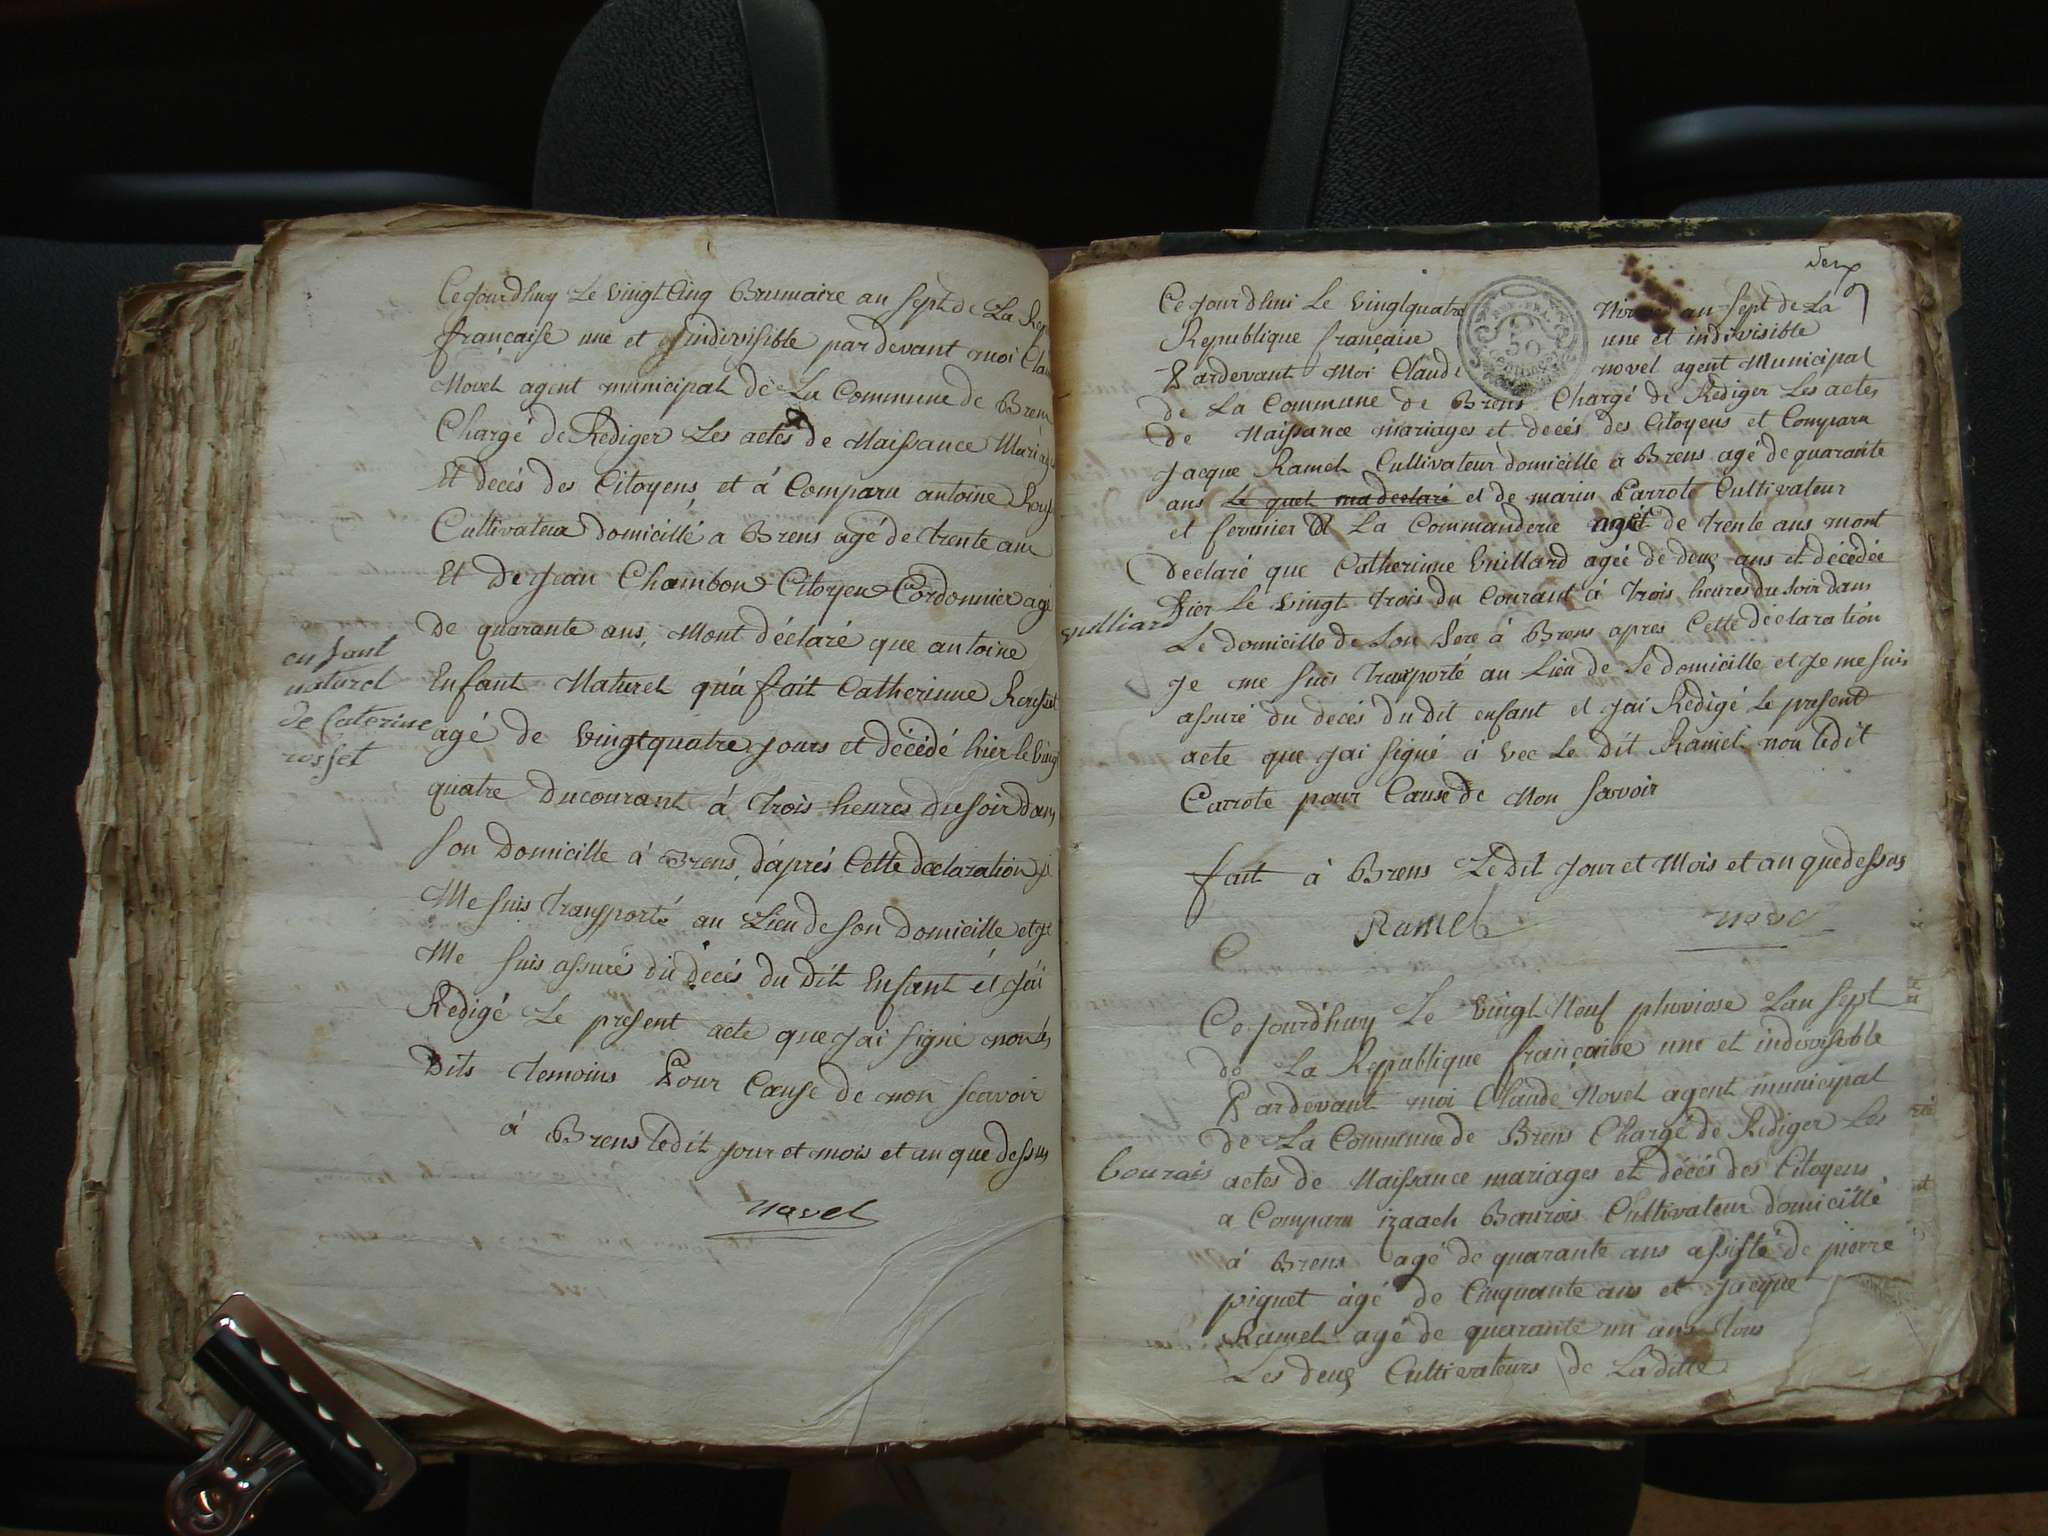 Cejourdhuy Le vingt Cinq Brumaire an Sept de La Rep
française une et indivisible pardevant moi Clau
Novel agent municipal de La Commune de Brens
Chargé de Rediger Les actes de Naissance Mariage
Et decés des Citoyens et á Comparu antoine
Cultivateur domicillé a Brens agé de trente ans
Et de Jean Chambon Citoyen Cordonnier agé
De quarante ans, Mont déclaré que antoine
Enfant Naturel qu'a fait Catherinne
agé de vingtquatre jours et décédé hier le ving
quatre ducourant á trois heures dusoir dans
Son Domicille á Brens, d'aprés Cette declaration je
Me suis transporté au Lieu de son domicille et je
Me suis assuré du decés du dit Enfant et j'ai
Redigé Le present acte que j'ai signé non les
Dits temoins Pour Cause de non scavoir
á Brens ledit jour et mois et an que dessus
Novel
enfant
naturel
de Caterine
rosset
deux
Ce jourdhui Le vingtquatre Nivose an sept de La
Republique française une et indivisible
Pardevant Moi Claude novel agent Municipal
de La Commune de Brens Chargé de Rediger Les actes
de Naissance mariages et decés des Citoyens et Comparu
Jacque Ramel Cultivateur domicille á Brens agé de quarante
ans Le quel madeclaré et de marin Carrote Cultivateur
et fermier de La Commanderie agé de trente ans mont
Declaré que Catherinne Vuillard agée de deux ans et décédée
hier Le vingt trois du Courant á trois heures du soir dans
Le domicille de Son Pere á Brens apres Cette déclaration
Je me suis transporté au Lieu de Se domicille et je me suis
assuré du decés du dit enfant et j'ai Redigé le present
acte que j'ai signé á vec Le dit Ramel non ledit
Carrote pour Cause de Non savoir
fait á Brens Ledit Jour et Mois et an que dessus
Ramel Novel
vulliard
50
Ce jourd'huy Le vingt Neuf pluviose Lan sept
de La Republique française une et indivisible
Pardevant moi Claude Novel agent municipal
de La Commune de Brens Chargé de Rediger Les
actes de Naissance mariages et décés des Citoyens
a Comparu izaach Bourois Cultivateur domicillé
á Brens agé de quarante ans assisté de pierre
piquet agé de Cinquante ans et Jacque
Ramel agé de quarante un ans tous
Les deux Cultivateurs de Laditte
bourais